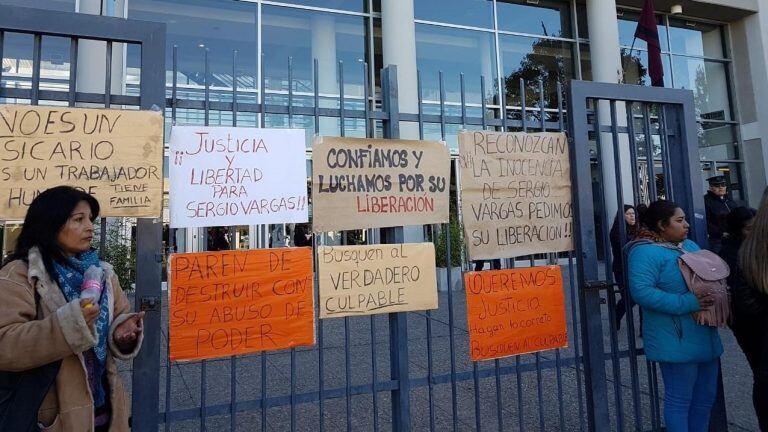 NO ES UN
SICARIO
ES UN TRABAJADOR
HUMILDE TIENE
FAMILIA
¡¡JUSTICIA
Y
LIBERTAD
PARA
SERGIO VARGAS!!
CONFÍAMOS Y
LUCHAMOS POR SU
LIBERACIÓN
RECONOZCAN
LA INOCENCIA
DE SERGIO
VARGAS PEDIMOS
SU LIBERACION!!
PAREN DE
DESTRUIR CON
SU ABUSO DE
PODER
BUSQUEN AL
VERDADERO
CULPABLE
QUEREMOS
JUSTICIA
HAGAN LO CORRETO
BUSQUEN AL CULPABLE